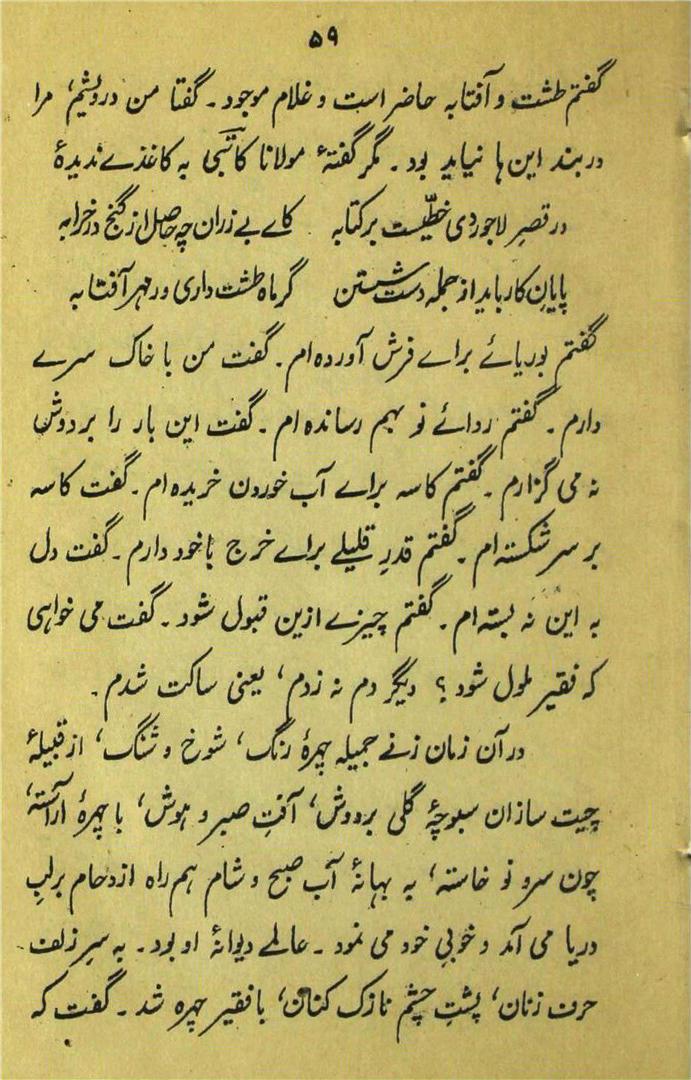 ۵۹
گفتم طشت و آفتابہ حاضر است و غلام موجود۔ گفتا من درویشم، مرا
در بند این ہا نباید بود۔ مگر گفتۂ مولانا کاتبی بہ کاغذے ندیدۂ
در قصرِ لاجوردی خطّیست بر کتابہ کاے بے زران چہ حاصل از گنج در خرابہ
پایانِ کار باید از جملہ دست شستن گر ماہ طشت داری ور مہر آفتابہ
گفتم بوریائے براے فرش آوردہ ام۔ گفت من با خاک سرے
دارم۔ گفتم ردائے نو بہم رساندہ ام۔ گفت این بار را بر دوش
نہ می گزارم۔ گفتم کاسہ براے آب خوردن خریدہ ام۔ گفت کاسہ
بر سر شکستہ ام۔ گفتم قدرِ قلیلے براے خرج با خود دارم۔ گفت دل
بہ این نہ بستہ ام۔ گفتم چیزے ازین قبول شود۔ گفت می خواہی
کہ فقیر ملول شود؟ دیگر دم نہ زدم، یعنی ساکت شدم۔
در آن زمان زنے جمیلہ چہرۂ رنگ، شوخ و شنگ، از قبیلۂ
چیت سازان سبوچۂ گلی بر دوش، آفتِ صبر و ہوش، با چہرۂ آراستہ،
چون سرو نو خاستہ، بہ بہانۂ آب صبح و شام ہم راہ ازدحام بر لبِ
دریا می آمد و خوبیِ خود می نمود۔ عالمے دیوانۂ او بود۔ بہ سرِ زلف
حرف زنان، پشتِ چشم نازک کنان، با فقیر چہرہ شد۔ گفت کہ